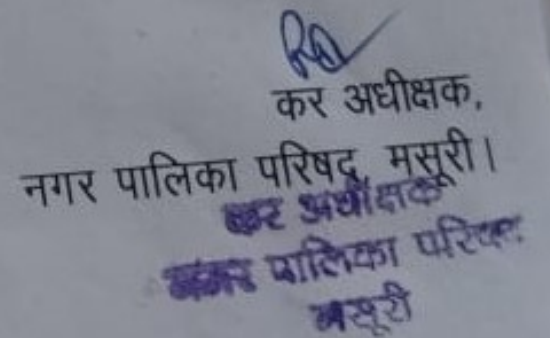 कर अधीक्षक,
नगर पालिका परिषद्, मसूरी।
कर अधीक्षक
नगर पालिका परिषद
मसूरी